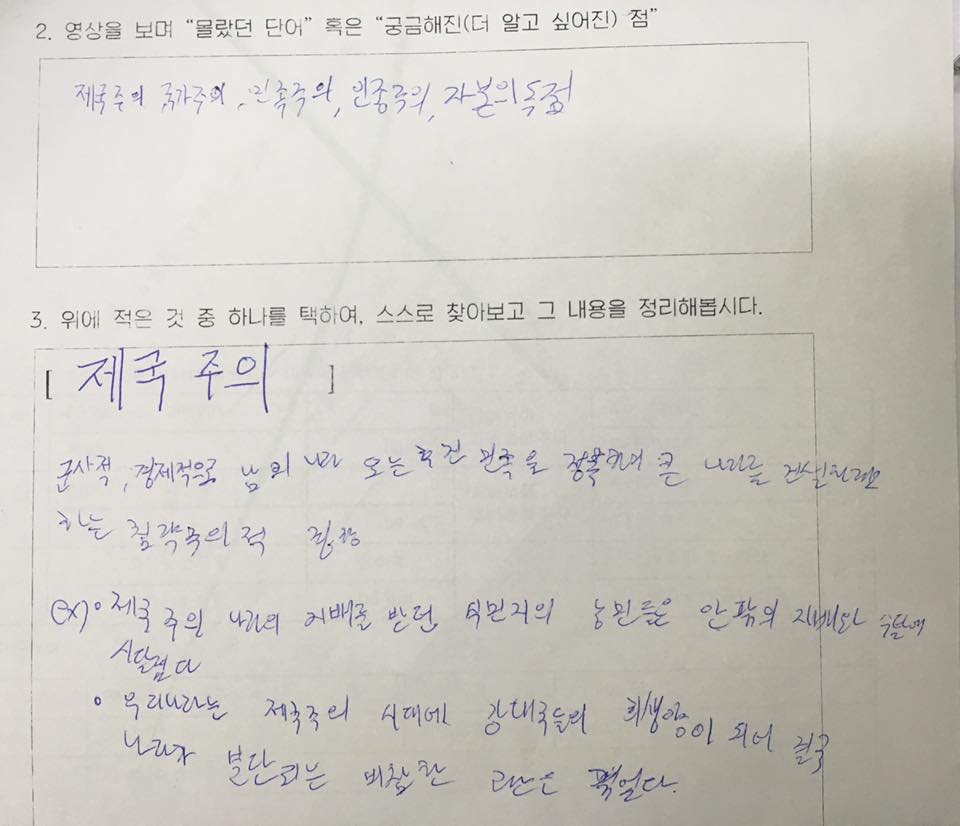 2. 영상을 보며 “몰랐던 단어” 혹은 “궁금해진(더 알고 싶어진) 점”
제국주의 국가주의, 민족주의, 인종주의, 자본의독점
3. 위에 적은 것 중 하나를 택하여, 스스로 찾아보고 그 내용을 정리해봅시다.
[ 제국 주의 ]
군사적, 경제적으로 남의 나라 또는 후진 민족을 정복하여 큰 나라를 건설하려고
하는 침략주의적 경향
(ex) • 제국 주의 나라의 지배를 받던 식민지의 농민들은 안팎의 지배와 수탈에
시달렸다
• 우리나라는 제국주의 시대에 강대국들의 희생양이 되어 결국
나라가 분단되는 비참한 고난을 겪었다.